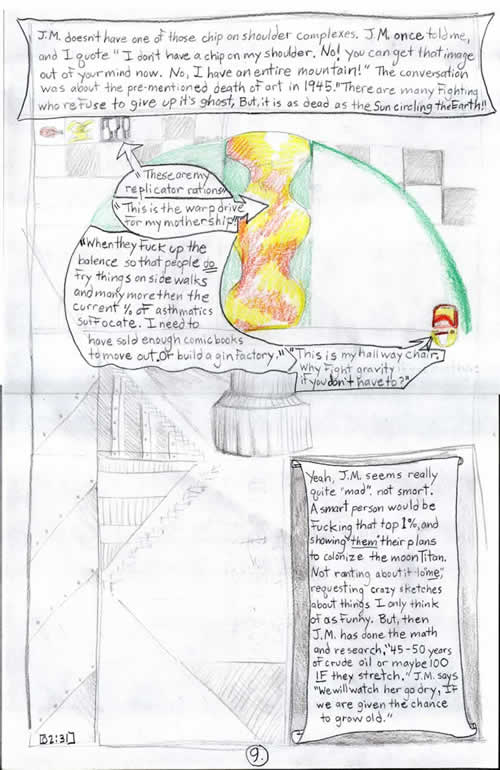 J.M. doesn't have one of those chip on shoulder complexes. J.M. once told me,
and I quote "I don't have a chip on my shoulder. No! you can get that image
out of your mind now. No, I have an entire mountain!" The conversation
was about the pre-mentioned death of art in 1945. "There are many fighting
who refuse to give up it's ghost, But, it is as dead as the Sun circling the Earth!!
"These are my
replicator rations."
"This is the warp drive
for my mothership!"
"When they fuck up the
balence so that people do
try things on side walks
and many more then the
current % of asthmatics
suffocate. I need to
have sold enough comic books
to move out. Or build a gin factory."
"This is my hallway chair.
Why fight gravity
if you don't have to?"
Yeah, J.M. seems really
quite "mad". not smart.
A smart person would be
fucking that top 1%, and
showing them their plans
to colonize the moon Titan.
Not ranting about it to me,
requesting crazy sketches
about things I only think
of as funny. But, then
J.M. has done the math
and research, "45-50 years
of crude oil or maybe 100
IF they stretch." J.M. says
"We will watch her go dry, If
we are given the chance
to grow old."
[32:31]
9.